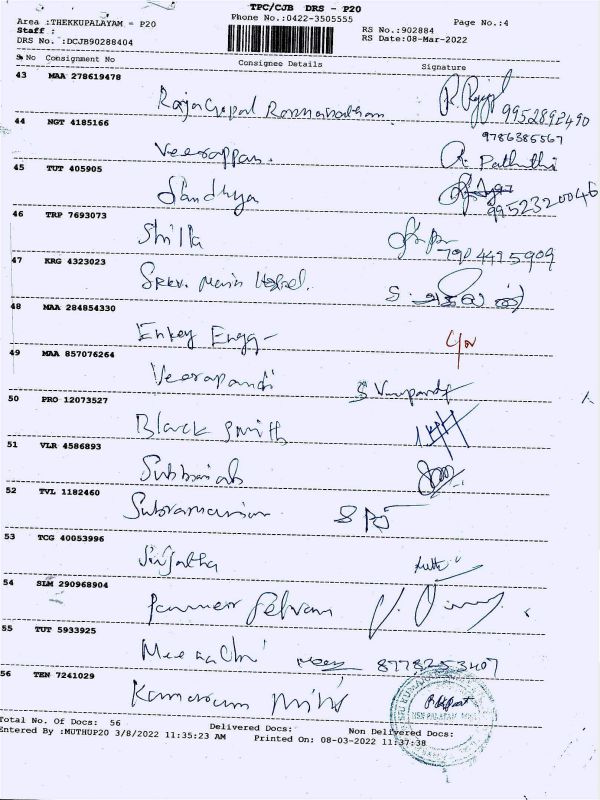 TPC/CJB DRS - P20
Area :THEKKUPALAYAM - P20 Phone No.:0422-3505555 Page No.:4
Staff : RS No.:902884
DRS No. :DCJB90288404 RS Date:08-Mar-2022
S No Consignment No Consignee Details Signature
43 MAA 278619478
Rajagopal 9952892490
44 NGT 4185166 9786385567
Veerappan. R. Pathithi
45 TUT 405905
Sandhya 9952320046
46 TRP 7693073
7904415909
47 KRG 4323023
Main Hostel.
48 MAA 284854330
Enkey Engg-
49 MAA 857076264
Veerapandi
50 PRO 12073527
Black Smith
51 VLR 4586893
Subbaiah
52 TVL 1182460
Subramanian
53 TCG 40053996
Sujatha
54 SLM 290968904
Panneer Selvam
55 TUT 5933925
Meenachi 8778253407
56 TEN 7241029
Total No. Of Docs: 56 Delivered Docs: Non Delivered Docs:
Entered By :MUTHUP20 3/8/2022 11:35:23 AM Printed On: 08-03-2022 11:37:38